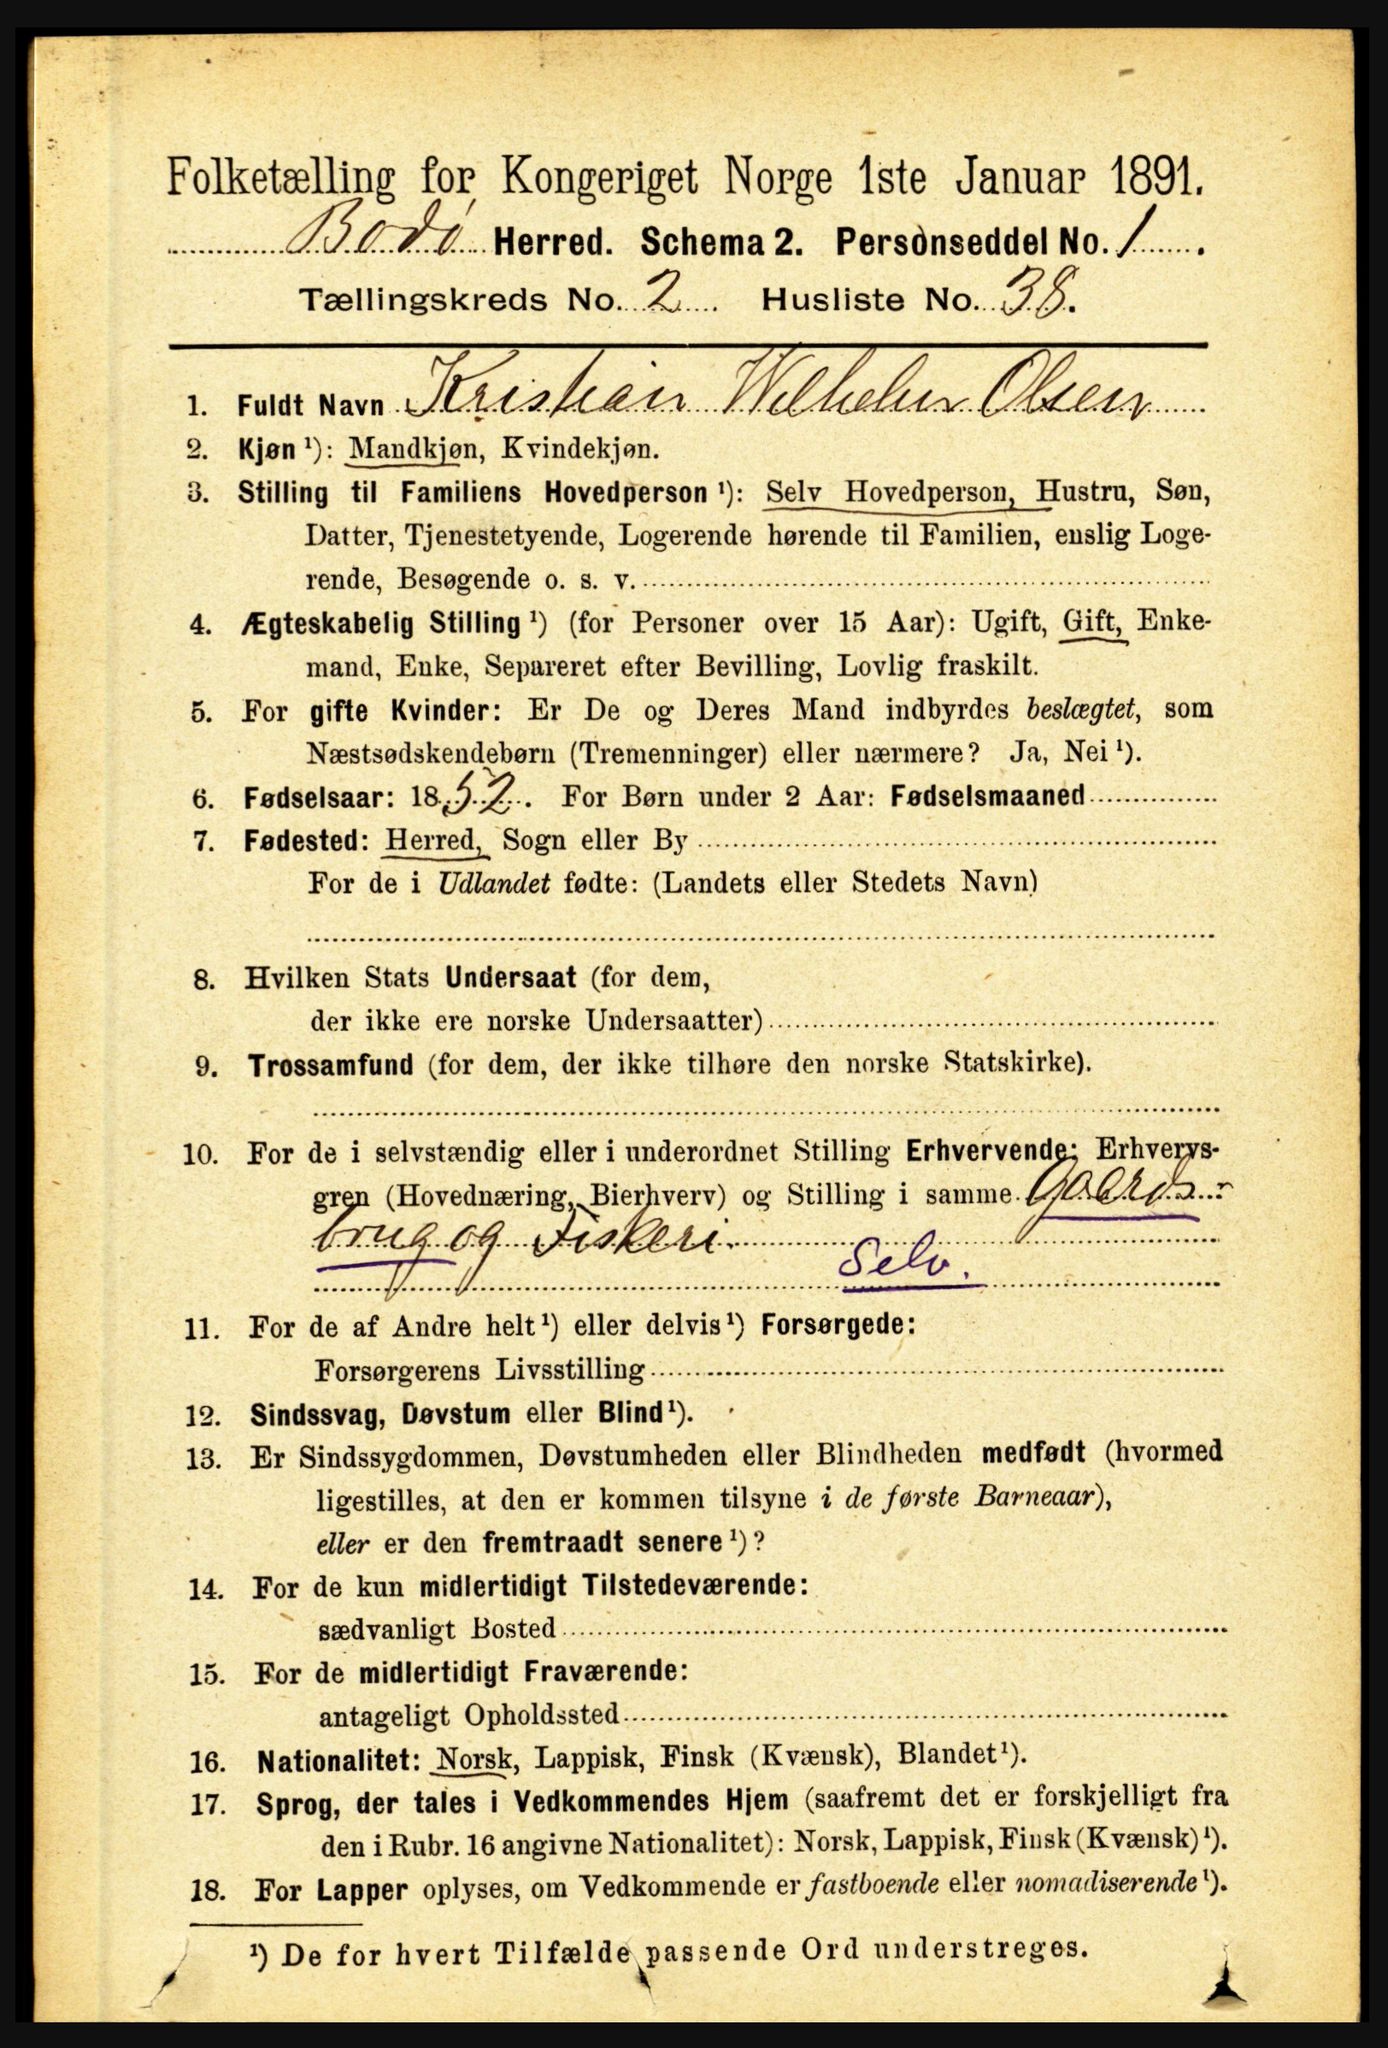 Folketælling for Kongeriget Norge 1ste Januar 1891.
Bodø Herred. Schema 2. Personseddel No. 1.
Tællingskreds No. 2. Husliste No. 38.
1. Fuldt Navn Kristian Wilhelm Olsen
2. Kjøn ¹): Mandkjøn, Kvindekjøn.
3. Stilling til Familiens Hovedperson ¹): Selv Hovedperson, Hustru, Søn,
Datter, Tjenestetyende, Logerende hørende til Familien, enslig Loge-
rende, Besøgende o. s. v.
4. Ægteskabelig Stilling ¹) (for Personer over 15 Aar): Ugift, Gift, Enke-
mand, Enke, Separeret efter Bevilling, Lovlig fraskilt.
5. For gifte Kvinder: Er De og Deres Mand indbyrdes beslægtet, som
Næstsødskendebørn (Tremenninger) eller nærmere? Ja, Nei ¹).
6. Fødselsaar: 1852. For Børn under 2 Aar: Fødselsmaaned
7. Fødested: Herred, Sogn eller By
For de i Udlandet fødte: (Landets eller Stedets Navn)
8. Hvilken Stats Undersaat (for dem,
der ikke ere norske Undersaatter)
9. Trossamfund (for dem, der ikke tilhøre den norske Statskirke).
10. For de i selvstændig eller i underordnet Stilling Erhvervende: Erhvervs-
gren (Hovednæring, Bierhverv) og Stilling i samme Gaards-
brug og Fiskeri.
Selv.
11. For de af Andre helt ¹) eller delvis ¹) Forsørgede:
Forsørgerens Livsstilling
12. Sindssvag, Døvstum eller Blind ¹).
13. Er Sindssygdommen, Døvstumheden eller Blindheden medfødt (hvormed
ligestilles, at den er kommen tilsyne i de første Barneaar),
eller er den fremtraadt senere ¹)?
14. For de kun midlertidigt Tilstedeværende:
sædvanligt Bosted
15. For de midlertidigt Fraværende:
antageligt Opholdssted
16. Nationalitet: Norsk, Lappisk, Finsk (Kvænsk), Blandet ¹).
17. Sprog, der tales i Vedkommendes Hjem (saafremt det er forskjelligt fra
den i Rubr. 16 angivne Nationalitet): Norsk, Lappisk, Finsk (Kvænsk) ¹).
18. For Lapper oplyses, om Vedkommende er fastboende eller nomadiserende ¹).
¹) De for hvert Tilfælde passende Ord understreges.